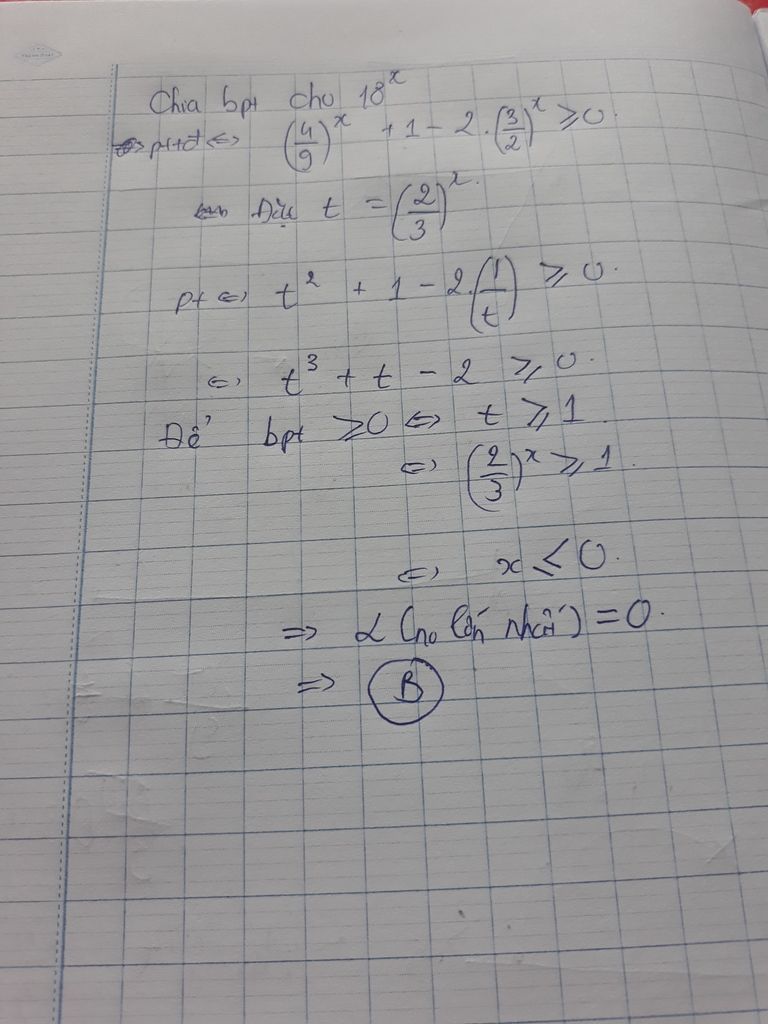 Chia bpt cho 18^x
pttđ <=> (4/9)^x + 1 - 2.(3/2)^x ≥ 0.
Đặt t = (2/3)^x.
pt <=> t^2 + 1 - 2.(1/t) ≥ 0.
<=> t^3 + t - 2 ≥ 0.
Để bpt ≥ 0 <=> t ≥ 1
<=> (2/3)^x ≥ 1.
<=> x ≤ 0.
=> α (no lớn nhất) = 0.
=> B